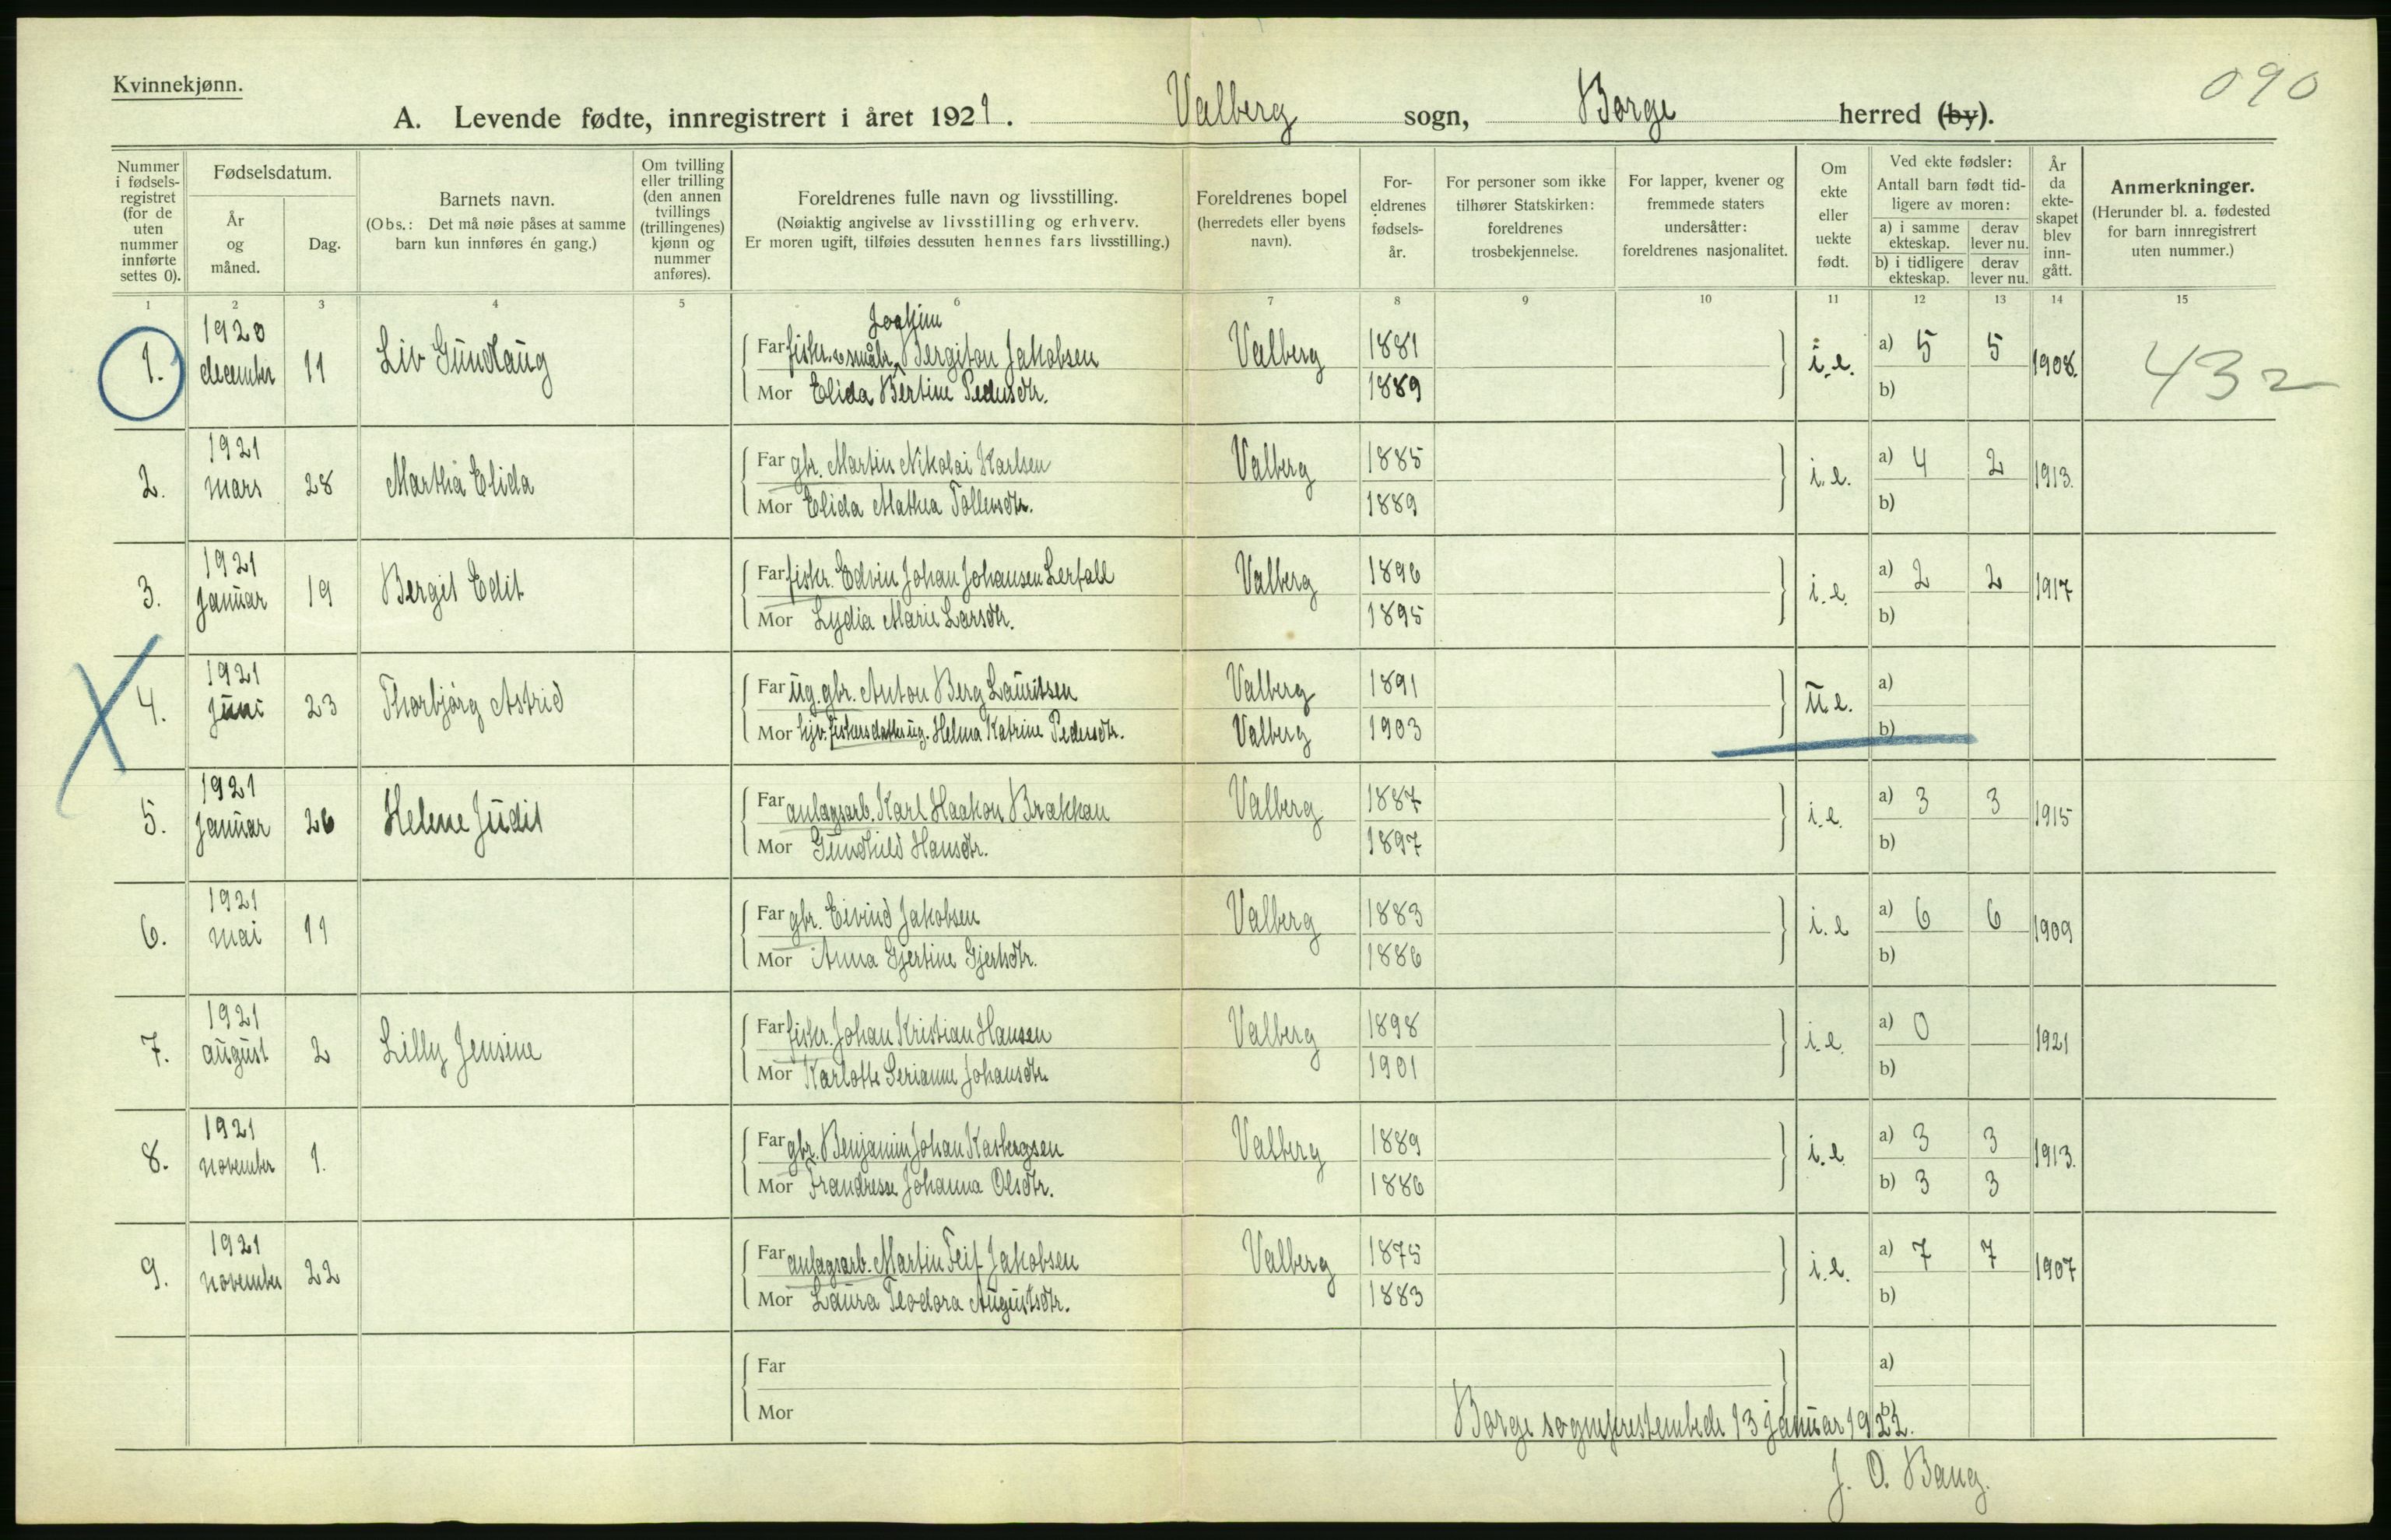 Kvinnekjønn.
090
A. Levende fødte, innregistrert i året 1921. Valberg sogn, Borge herred (by).
Nummer i fødsels-registret (for de uten nummer innførte settes 0).
Fødselsdatum.
År og måned.
Dag.
Barnets navn.
(Obs.: Det må nøie påses at samme barn kun innføres én gang.)
Om tvilling eller trilling (den annen tvillings (trillingenes) kjønn og nummer anføres).
Foreldrenes fulle navn og livsstilling.
(Nøiaktig angivelse av livsstilling og erhverv.
Er moren ugift, tilføies dessuten hennes fars livsstilling.)
Foreldrenes bopel (herredets eller byens navn).
For-eldrenes fødsels-år.
For personer som ikke tilhører Statskirken: foreldrenes trosbekjennelse.
For lapper, kvener og fremmede staters undersåtter: foreldrenes nasjonalitet.
Om ekte eller uekte født.
Ved ekte fødsler:
Antall barn født tid-ligere av moren:
a) i samme ekteskap.
derav lever nu.
b) i tidligere ekteskap.
derav lever nu.
År da ekte-skapet blev inn-gått.
Anmerkninger.
(Herunder bl. a. fødested for barn innregistrert uten nummer.)
1 2 3 4 5 6 7 8 9 10 11 12 13 14 15
1. 1920 december 11 Liv Gundlaug
Far fisker. & småbr. Joakim Bergiton Jakobsen Valberg 1881 i.e. a) 5 5 1908. 432
Mor Elida Bertine Pedersdtr. 1889 b)
2. 1921 mars 28 Martha Elida
Far gbr. Martin Nikolai Karlsen Valberg 1885 i.e. a) 4 2 1913.
Mor Elida Mathea Tollevsdtr. 1889 b)
3. 1921 januar 19 Bergit Edit
Far fisker. Edvin Johan Johansen Lerfall Valberg 1896 i.e. a) 2 2 1917
Mor Lydia Marie Larsdtr. 1895 b)
4. 1921 juni 23 Thorbjørg Astrid
Far ug. gbr. Anton Berg Lauritsen Valberg 1891 u.e. a)
Mor hjv. fiskersdatter ug. Helma Katrine Pedersdtr. Valberg 1903 b)
5. 1921 januar 26 Helene Judit
Far anlagsarb. Karl Haakon Brækkan Valberg 1887 i.e. a) 3 3 1915
Mor Gundhild Hansdtr. 1897 b)
6. 1921 mai 11
Far gbr. Eivind Jakobsen Valberg 1883 i.e a) 6 6 1909
Mor Anna Gjertine Gjertsdtr. 1886 b)
7. 1921 august 2 Lilly Jensine
Far fisker. Johan Kristian Hansen Valberg 1898 i.e. a) 0 1921
Mor Karlotte Serianne Johansdtr. 1901 b)
8. 1921 november 1.
Far gbr. Benjamin Johan Kasbergsen Valberg 1889 i.e. a) 3 3 1913.
Mor Johanna Olsdtr. 1886 b) 3 3
9. 1921 november 22
Far anlagsarb. Martin Jakobsen Valberg 1875 i.e. a) 7 7 1907
Mor Laura Teodora Augustsdtr. 1883 b)
Far a)
Mor b)
Borge sogneprestembede 13 januar 1922.
J. O. Bang.